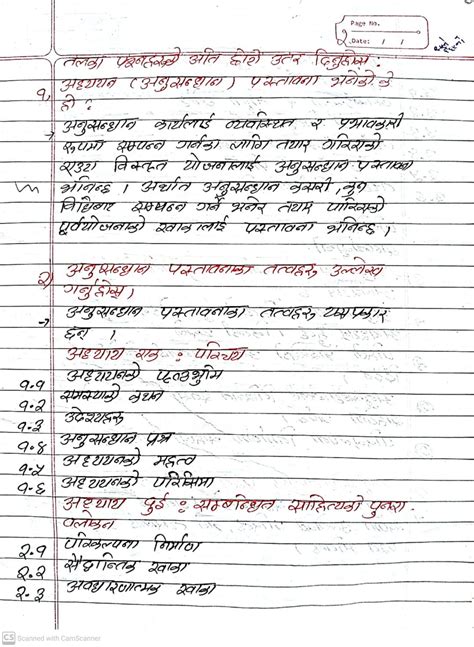 Page No.
२ Date: / /
तलका प्रश्नहरूको अति छोटो उत्तर दिनुहोस् :
१. अध्ययन (अनुसन्धान) प्रस्तावना भनेको के
हो ?
→ अनुसन्धान कार्यलाई व्यवस्थित र प्रभावकारी
रूपमा सम्पन्न गर्नका लागि तयार गरिएको
एउटा विस्तृत योजनालाई अनुसन्धान प्रस्तावना
भनिन्छ । अर्थात अनुसन्धान कसरी, कुन
विधिबाट सम्पन्न गर्ने भनेर तयार पारिएको
पूर्वयोजनाको खाकालाई प्रस्तावना भनिन्छ ।
२) अनुसन्धान प्रस्तावनाका तत्वहरू उल्लेख
गर्नुहोस् ।
→ अनुसन्धान प्रस्तावनाका तत्वहरू यसप्रकार
छन् ।
अध्याय एक : परिचय
१.१ अध्ययनको पृष्ठभूमि
१.२ समस्याको कथन
१.३ उद्देश्यहरू
१.४ अनुसन्धान प्रश्न
१.५ अध्ययनको महत्व
१.६ अध्ययनको परिसिमा
अध्याय दुई : सम्बन्धित साहित्यको पुनरा-
वलोकन
२.१ परिकल्पना निर्माण
२.२ सैद्धान्तिक खाका
२.३ अवधारणात्मक खाका
CS Scanned with CamScanner